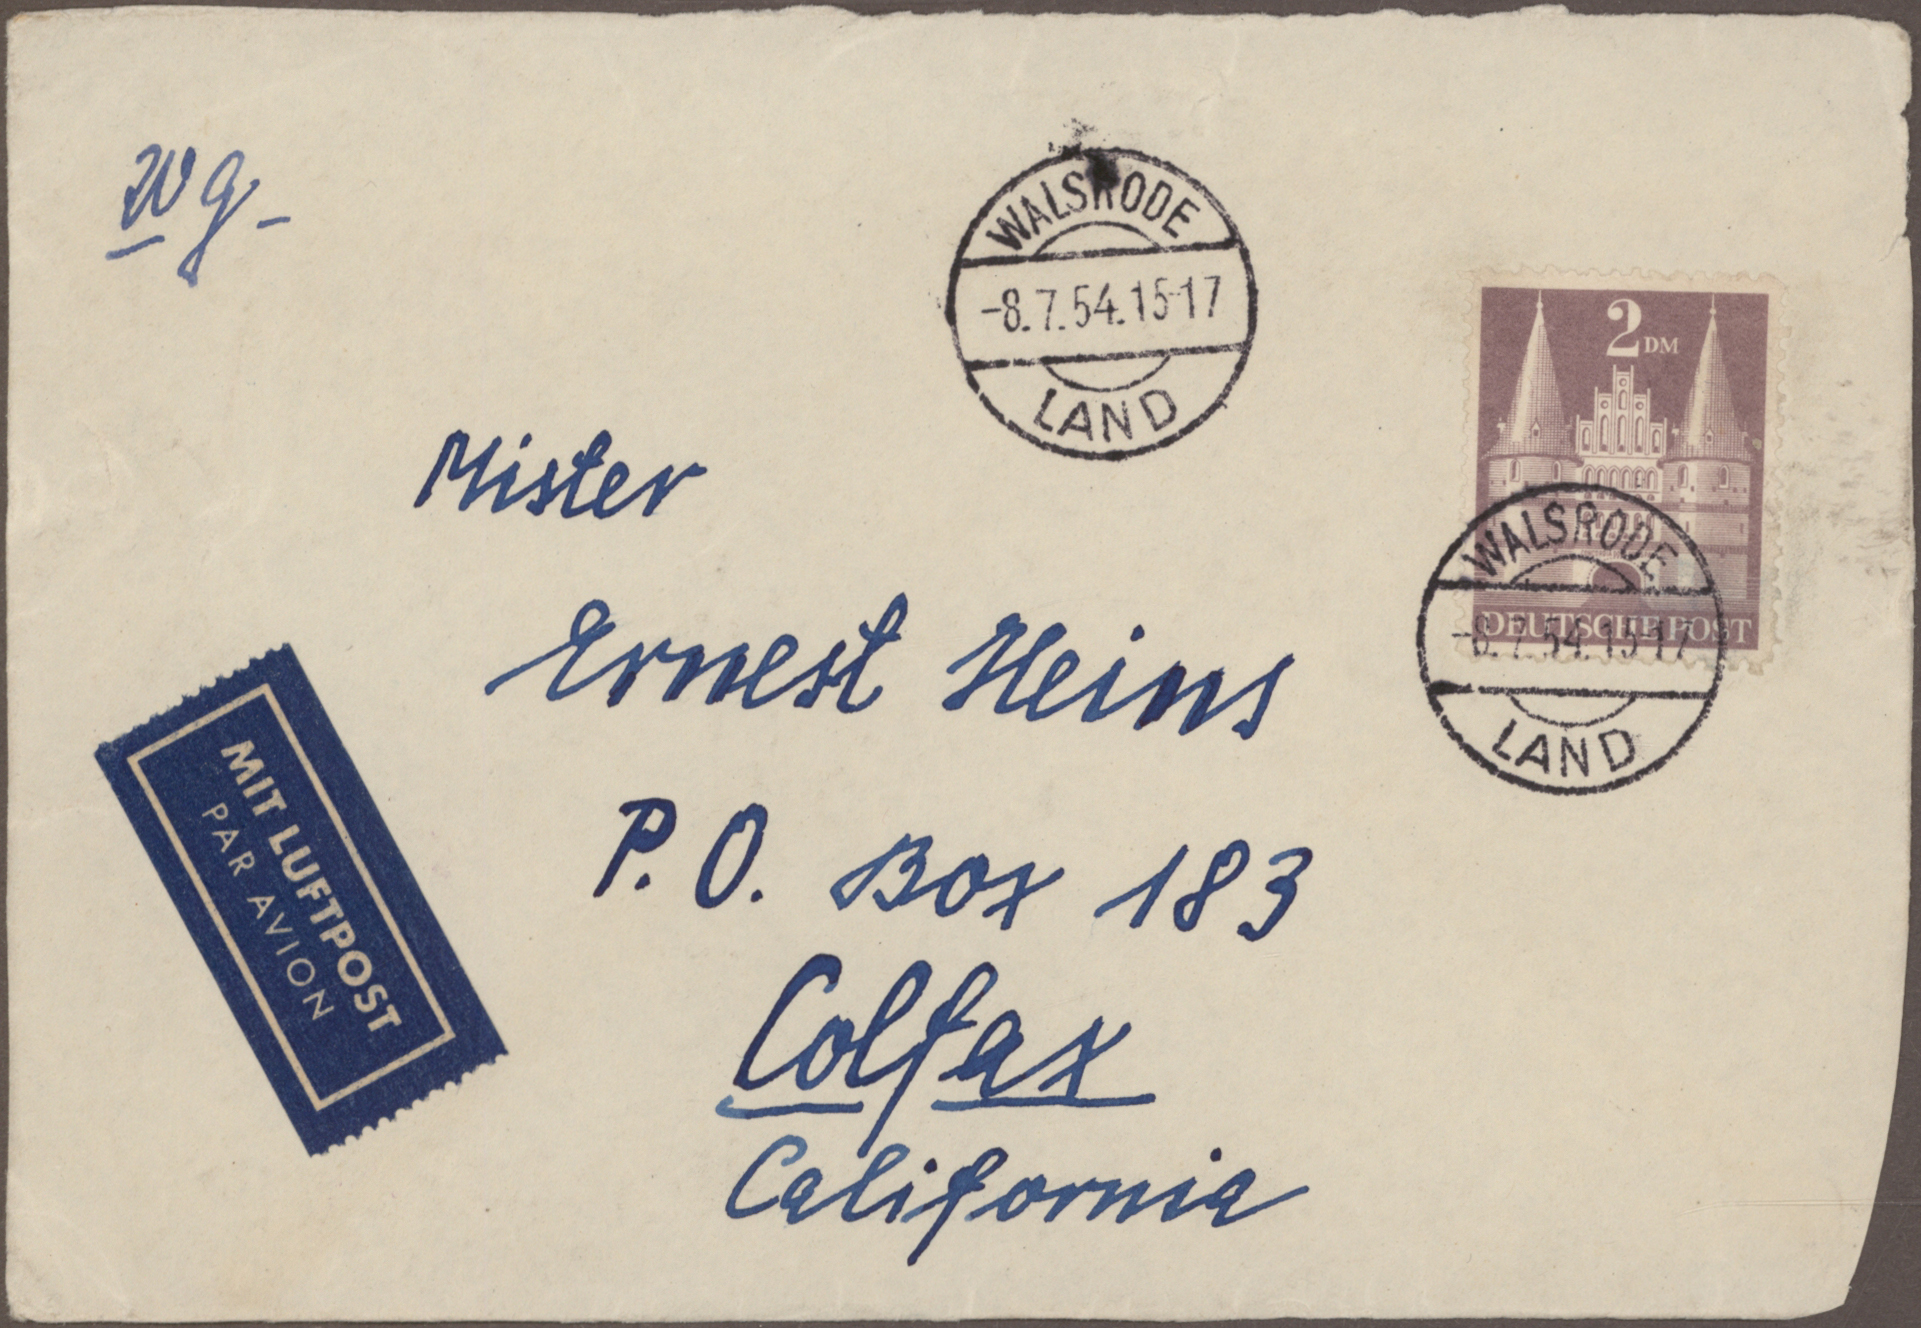 Wg-
WALSRODE
-8.7.54.15-17
LAND
2 DM
DEUTSCHE POST
WALSRODE
-8.7.54.15-17
LAND
Mister
Ernest Heins
P.O. Box 183
Colfax
California
MIT LUFTPOST
PAR AVION